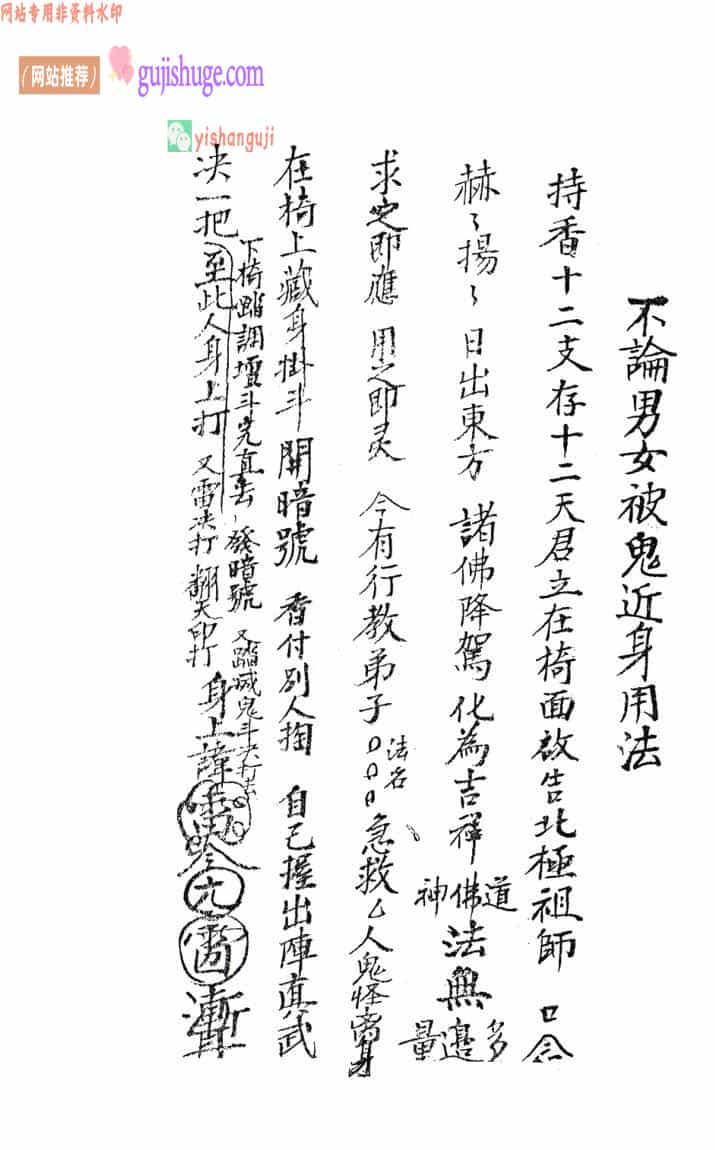 网站专用非资料水印
(网站推荐) gujishuge.com
yishanguji
不論男女被鬼近身用法
持香十二支存十二天君立在椅面啟告北極祖師 口念
赫〻揚〻 日出東方 諸佛降駕 化為吉祥 道佛神 法無 多邊量
求之即應 用之即灵 今有行教弟子 法名 〇〇〇 急救厶人鬼怪离身
在椅上藏身掛斗 開暗號 香付別人掏 自己握出陣真武
下椅踏調壇斗完直去 發暗號 又踏滅鬼斗决打去
决一把 至此人身上打 又雷决打 翻天印打 身上諱